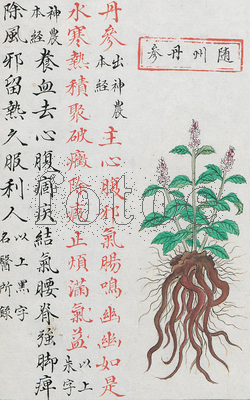 随州丹參
丹參出神農本經主心腹邪氣腸鳴幽幽如是
水寒熱積聚破癥除瘕止煩滿氣益以上朱字
神農本經養血去心腹痼疾結氣腰脊強脚痺
除風邪留熱久服利人以上黑字名醫所錄
fotoe